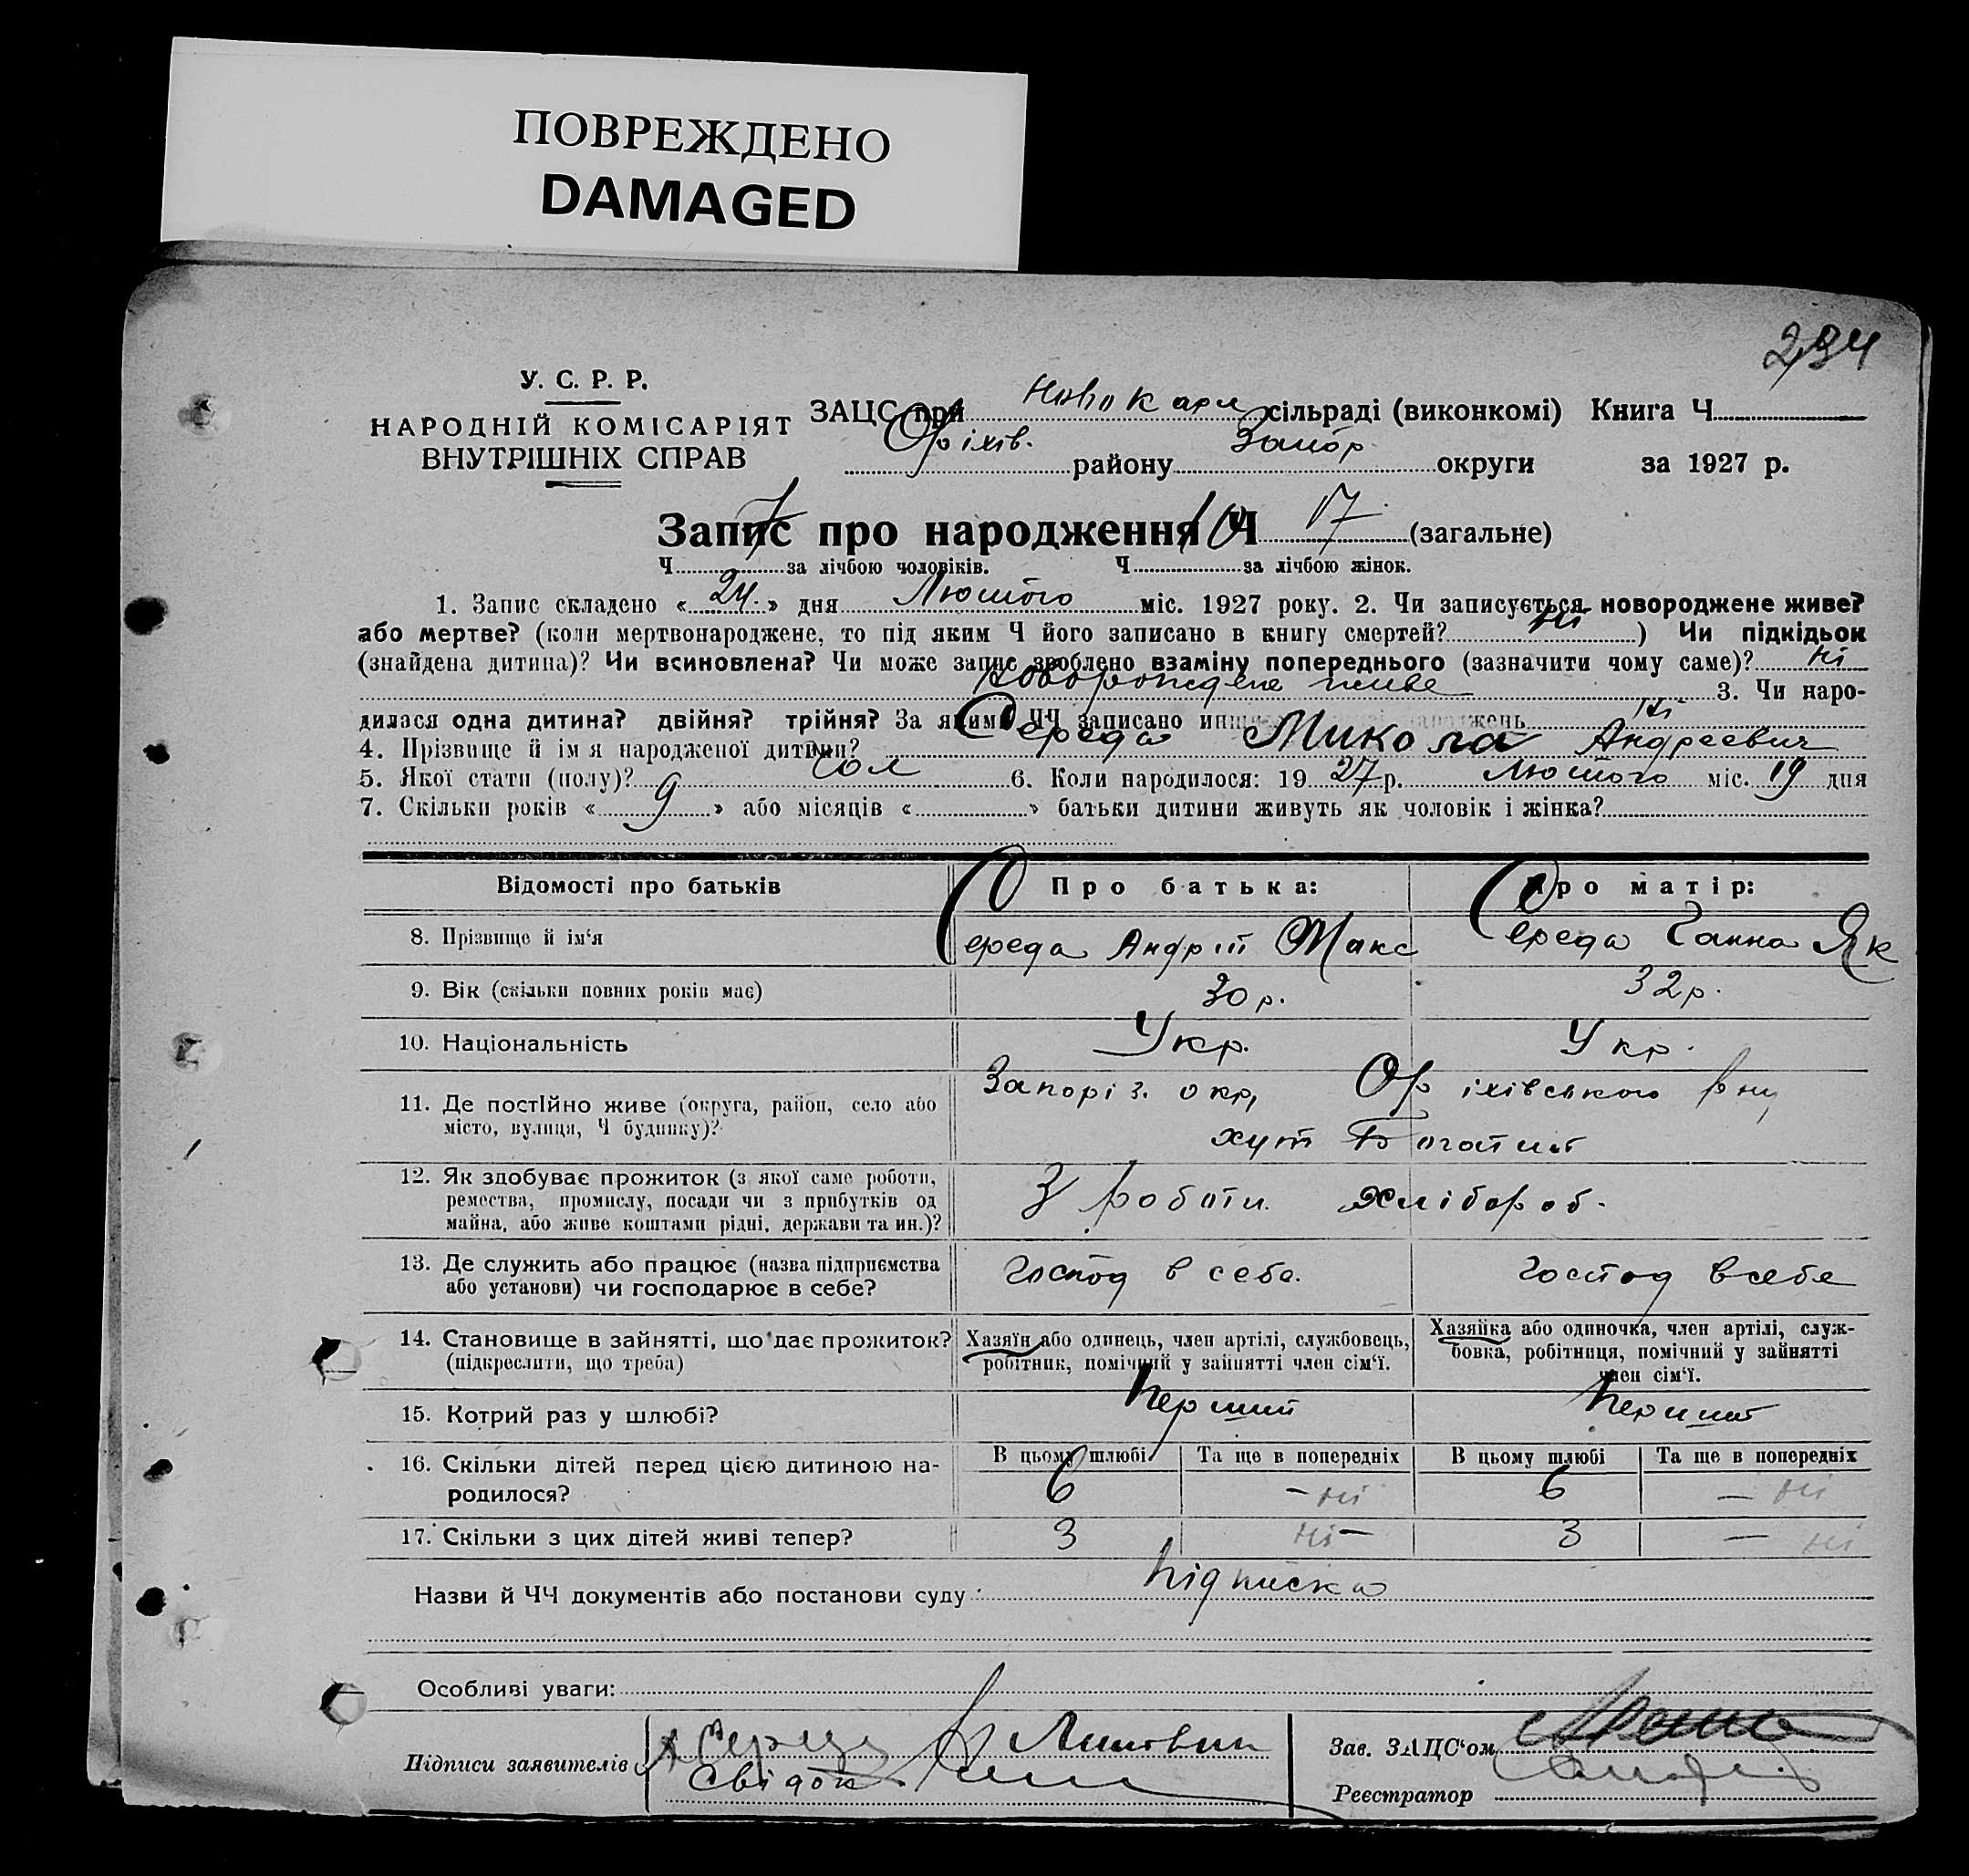 ПОВРЕЖДЕНО
DAMAGED
294
У. С. Р. Р.
НАРОДНІЙ КОМІСАРІЯТ
ВНУТРІШНІХ СПРАВ
ЗАЦС при Новокарл сільраді (виконкомі) Книга Ч
Оріхів. району Запор. округи за 1927 р.
Запис про народження Ч 17 (загальне)
Ч 7 за лічбою чоловіків. Ч 10 за лічбою жінок.
1. Запис складено « 24. » дня Лютого міс. 1927 року. 2. Чи записується новороджене живе?
або мертве? (коли мертвонароджене, то під яким Ч його записано в книгу смертей? Ні ) Чи підкідьок
(знайдена дитина)? Чи всиновлена? Чи може запис зроблено взаміну попереднього (зазначити чому саме)? Ні
новорождене живе 3. Чи наро-
дилася одна дитина? двійня? трійня? За якими ЧЧ записано инш народжень Ні
4. Прізвище й імя народженої дитини? Середа Микола Андреевич
5. Якої стати (полу)? Чол 6. Коли народилося: 19 27 р. Лютого міс. 19 дня
7. Скільки років « 9 » або місяців « » батьки дитини живуть як чоловік і жінка?
Відомості про батьків Про батька: Про матір:
8. Прізвище й ім'я Середа Андрій Макс Середа Ганна Як
9. Вік (скільки повних років має) 30 р. 32 р.
10. Національність Укр. Укр.
11. Де постійно живе (округа, район, село або Запоріз. окр, Оріхівського р ну,
місто, вулиця, Ч будинку)? хут Богатий
12. Як здобуває прожиток (з якої саме роботи,
ремества, промислу, посади чи з прибутків од З роботи. хлібороб.
майна, або живе коштами рідні, держави та ин.)?
13. Де служить або працює (назва підприємства Господ в себе. Господ в себе
або установи) чи господарює в себе?
14. Становище в зайнятті, що дає прожиток? Хазяїн або одинець, член артілі, службовець, Хазяйка або одиночка, член артілі, служ-
(підкреслити, що треба) робітник, помічний у зайнятті член сім'ї. бовка, робітниця, помічний у зайнятті
член сім'ї.
15. Котрий раз у шлюбі? перший перший
16. Скільки дітей перед цією дитиною на- В цьому шлюбі Та ще в попередніх В цьому шлюбі Та ще в попередніх
родилося? 6 – ні 6 – ні
17. Скільки з цих дітей живі тепер? 3 ні – 3 – ні
Назви й ЧЧ документів або постанови суду підписка
Особливі уваги:
Підписи заявителів Середа
свідок
Зав. ЗАЦС'ом
Реєстратор